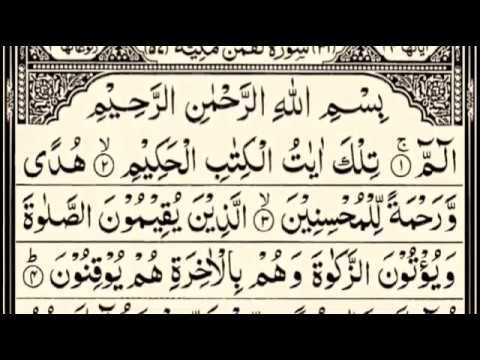 سُوْرَةُ لُقْمٰنَ مَكِّيَّةٌ
بِسْمِ اللهِ الرَّحْمٰنِ الرَّحِيْمِ
الٓمّٓ ۚ﴿۱﴾ تِلْكَ اٰيٰتُ الْكِتٰبِ الْحَكِيْمِ ۙ﴿۲﴾ هُدًى
وَّرَحْمَةً لِّلْمُحْسِنِيْنَ ۙ﴿۳﴾ الَّذِيْنَ يُقِيْمُوْنَ الصَّلٰوةَ
وَيُؤْتُوْنَ الزَّكٰوةَ وَهُمْ بِالْاٰخِرَةِ هُمْ يُوْقِنُوْنَ ؕ﴿۴﴾